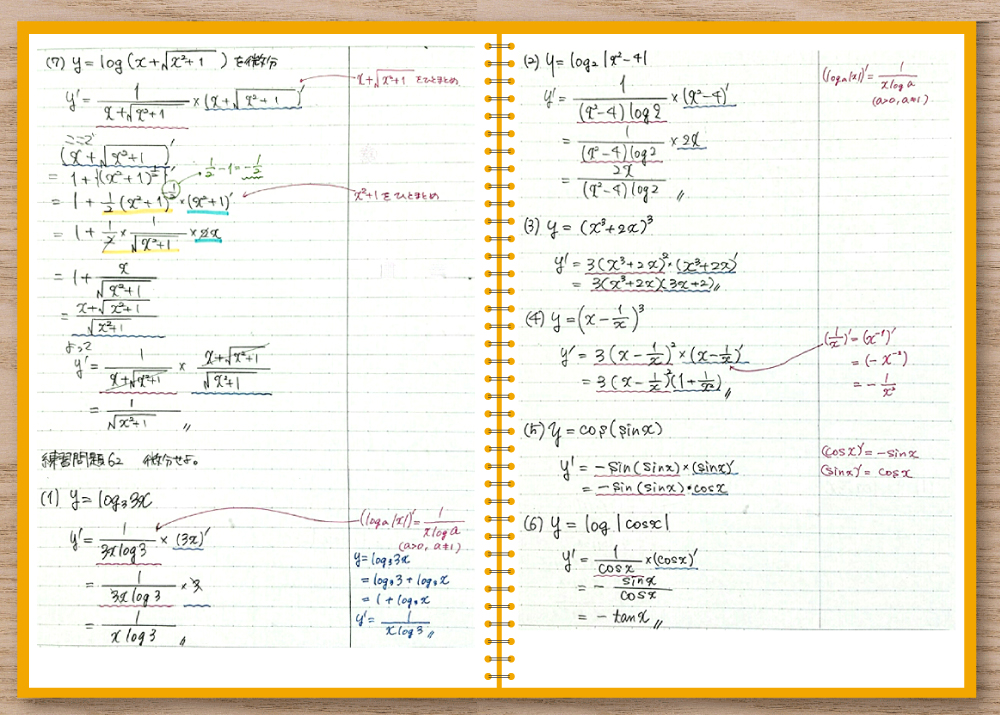 (7) y = log(x+√(x²+1)) を微分
y' = 1/(x+√(x²+1)) × (x+√(x²+1))'
x+√(x²+1) をひとまとめ
ここで
(x+√(x²+1))'
= 1+{(x²+1)^(1/2)}'
1/2 - 1 = -1/2
= 1 + 1/2 (x²+1)^(-1/2) × (x²+1)'
x²+1 をひとまとめ
= 1 + 1/2 × 1/√(x²+1) × 2x
= 1 + x/√(x²+1)
= (x+√(x²+1))/√(x²+1)
よって
y' = 1/(x+√(x²+1)) × (x+√(x²+1))/√(x²+1)
= 1/√(x²+1) 〃
練習問題62 微分せよ。
(1) y = log₃3x
y' = 1/(3x log3) × (3x)'
= 1/(3x log3) × 3
= 1/(x log3) 〃
(logₐ|x|)' = 1/(x log a)
(a>0, a≠1)
y = log₃3x
= log₃3 + log₃x
= 1 + log₃x
y' = 1/(x log3) 〃
(2) y = log₂|x²-4|
y' = 1/((x²-4) log2) × (x²-4)'
= 1/((x²-4) log2) × 2x
= 2x/((x²-4) log2) 〃
(logₐ|x|)' = 1/(x log a)
(a>0, a≠1)
(3) y = (x³+2x)³
y' = 3(x³+2x)²×(x³+2x)'
= 3(x³+2x)(3x+2) 〃
(4) y = (x - 1/x)³
y' = 3(x - 1/x)² × (x - 1/x)'
= 3(x - 1/x)²(1 + 1/x²) 〃
(1/x)' = (x⁻¹)'
= (-x⁻²)
= - 1/x²
(5) y = cos(sinx)
y' = -sin(sinx)×(sinx)'
= -sin(sinx)•cosx
(cosx)' = -sinx
(sinx)' = cosx
(6) y = log|cosx|
y' = 1/cosx × (cosx)'
= - sinx/cosx
= - tanx 〃